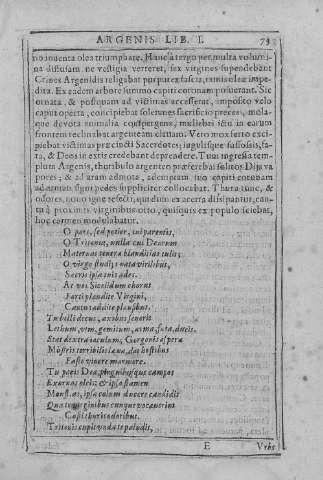 ARGENIS LIB. I. 73
no inuenta olea triumphare. Hanc à tergo per multa volumi-
na diffusam ne vestigia verreret, sex virgines suspendebant
Crines Argenidis religabat purpurea fascia, ramis oleæ impe-
dita. Ex eadem arbore summo capiti coronam posuerant. Sic
ornata, & postquam ad victimas accesserat, imposito velo
caput operta, concipiebat solennes sacrificio preces, mola-
que deuota animalia conspergens, muliebri ictu in earum
frontem reclinabat argenteam cultrum. Vero mox ferro exci-
piebat victimas præcincti Sacerdotes; iugulisque suffossis, fa-
ta, & Deos in extis credebant deprendere. Tum ingressa tem-
plum Argenis, thuribulo argenteo præferebat solitos Diis va
pores; & ad aram admota, ademptam suo capiti coronam
ad armatæ signi pedes suppliciter collocabat. Thura tunc, &
odores, nouo igne refecti, quidum ex acerra dissipantur, can-
tu à proximis virginibus orto, quisquis ex populo sciebas,
hoc carmen modulabatur.
O pars, sed potior, cui parentis,
O Tritonia, nulla cui Dearum
Maternas tenera blanditias tulit;
O virgo studiis nata virilibus,
Sacris ipsa tuis ades.
At vos Sicelidum chorus
Facti plaudite Virgini,
Cantu addite plausibus.
Tu belli decus, axibus seueris
Lethum, vim, gemitum, arma, fuga, ducis.
Stat dextra iaculum, Gorgonis aspera
Mōstris terribilis læua, das hostibus
Fasto viuere marmore.
Tu pacis Dea, pinguibusque campos
Exornas oleis; & ipsa stamen
Monstras, ipsa colum ducere candidis
Qua te virginibus cunque vocauerint
Capti thuricodoribus.
Tritonis cupit vnda te paludis,
E Vrbs